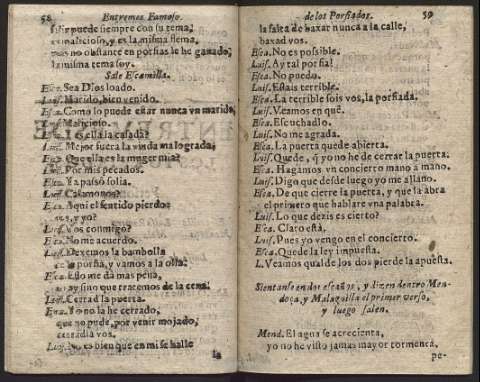 58 Entremes Famoso.
salir puede siempre con su tema,
es malicioso, y es la misma flema,
mas no obstante en porfias le he ganado,
la misma tema soy.
Sale Escamilla.
Esc. Sea Dios loado.
Luis. Marido, bien venido.
Esc. Como lo puede estar nunca vn marido,
Luis. Malicioso.
Esc. ella la casada?
Luis. Mejor fuera la viuda malograda;
Esc. Que ella es la muger mia?
Luis. Por mis pecados.
Esc. Ya passò folia.
Luis. Casamonos?
Esc. Aqui el sentido pierdo:
y yo?
Luis. Vos conmigo?
Esc. No me acuerdo.
Luis. Dexemos la bambolla
porfia, y vamos a la olla.
Esc. Esso me dà mas pena,
no ay sino que tratemos de la cena.
Luis. Cerrad la puerta.
Esc. Yo no la he cerrado,
que no pude, por venir mojado,
cerradla vos.
Luis. No es bien que en mi se halle
la
de los Porfiados. 59
la falta de baxar nunca a la calle,
baxad vos.
Esc. No es possible.
Luis. Ay tal porfia?
Esc. No puedo.
Luis. Estais terrible.
Esc. La terrible sois vos, la porfiada.
Luis. Veamos en què.
Esc. Escuchadlo.
Luis. No me agrada.
Esc. La puerta quede abierta.
Luis. Quede, q̃ yo no he de cerrar la puerta.
Esc. Hagamos vn concierto mano a mano.
Luis. Digo que desde luego yo me allano.
Esc. De que cierre la puerta, y que la abra
el primero que hablare vna palabra.
Luis. Lo que dezis es cierto?
Esc. Claro està.
Luis. Pues yo vengo en el concierto.
Esc. Quede la ley impuesta.
L. Veamos qual de los dos pierde la apuesta.
Sientanse en dos estaños, y dizen dentro Men-
doça, y Malaguilla el primer verso,
y luego salen.
Mend. El agua se acrecienta,
yo no he visto jamas mayor tormenta,
pe-